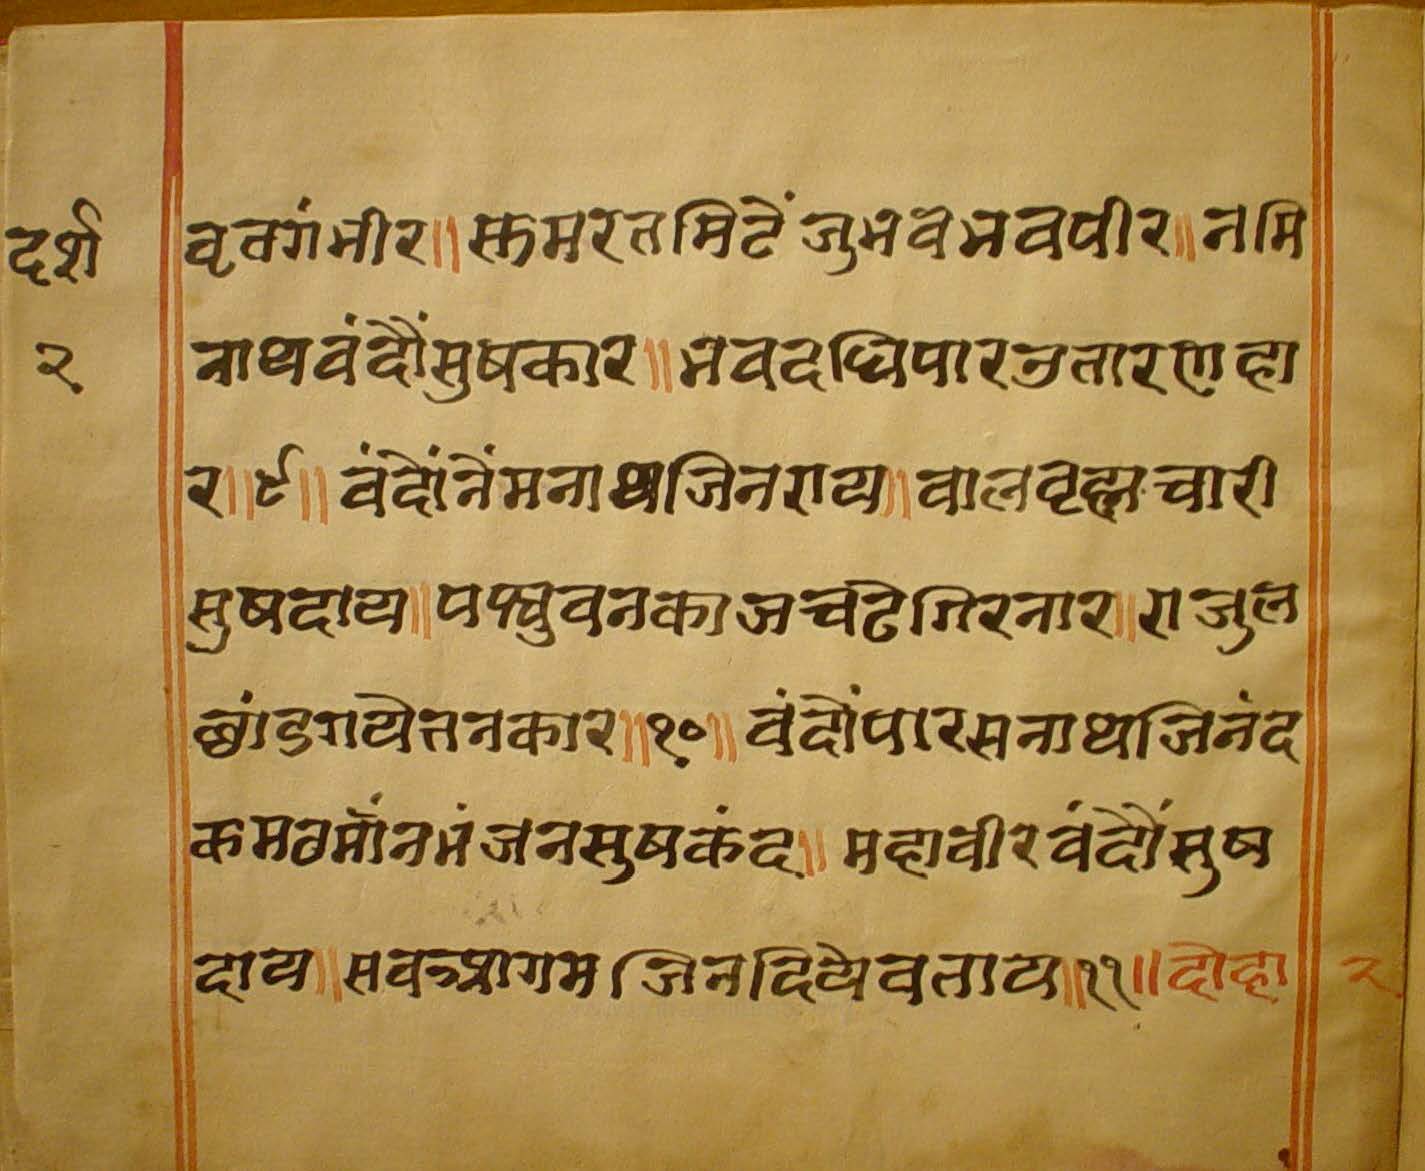 दर्श
२
वृतगंभीर॥ स्मरत मिटें जु भव भवपीर॥ नमि
नाथ वंदौं सुषकार॥ भवदधि पार उतारणहा
र॥९॥ वंदौं नेंमनाथ जिनराय॥ वालवृह्मचारी
सुषदाय॥ पस्युवन काज चढे गिरनार॥ राजुल
छांड गये तनकार॥१०॥ वंदौं पारसनाथ जिनंद
कमठ मांन भंजन सुषकंद॥ महावीर वंदौं सुष
दाय॥ सव आगम जिन दिये वताय॥११॥ दोहा
२